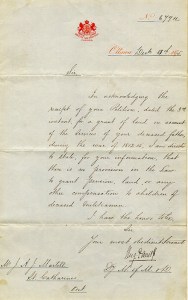 No 6774
Ottawa
Sir,
In acknowledging the
receipt of your Petition, dated the 8th
instant, for a grant of land on account
of the services of your deceased father
during the war of 1812-14, I am directed
to state, for your information, that
there is no provision in the law
to grant Pension, land or any
other compensation to children of
deceased Militiamen.
I have the honor to be,
Sir,
Your most obedient servant
Mr. J. A. J. Martell
St. Catharines
Ont.